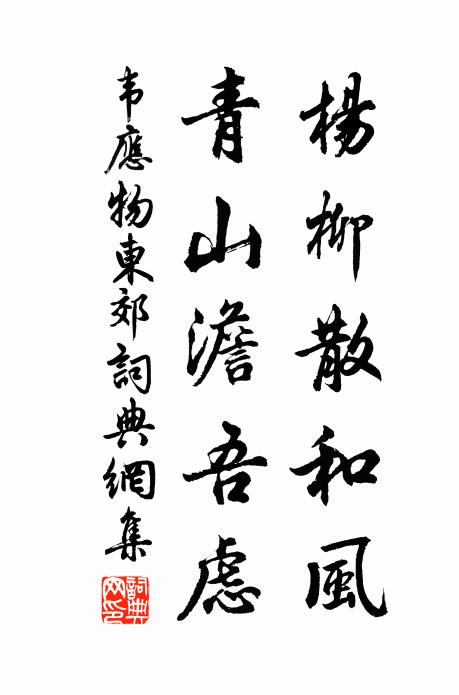 楊柳散和風
青山澹吾慮
韦應物東郊詞典網集
詞典网印